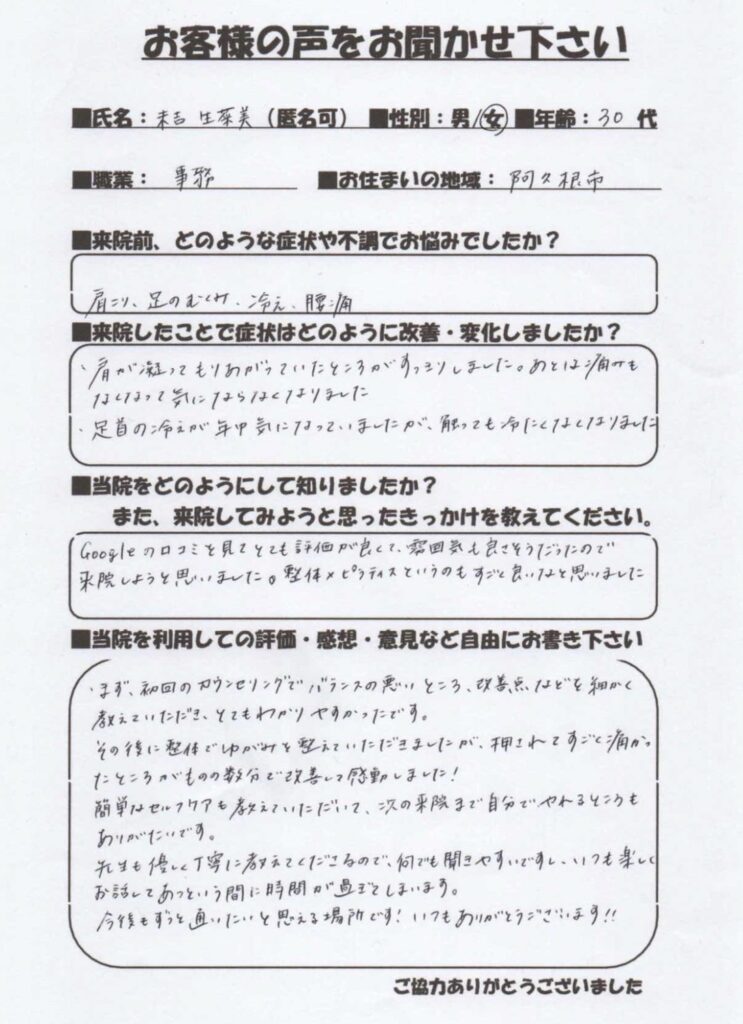 お客様の声をお聞かせ下さい
■氏名：末吉 生菜美（匿名可） ■性別：男/女 ■年齢：30 代
■職業： 事務 ■お住まいの地域： 阿久根市
■来院前、どのような症状や不調でお悩みでしたか？
肩こり、足のむくみ、冷え、腰痛
■来院したことで症状はどのように改善・変化しましたか？
・肩が凝ってもりあがっていたところがすっきりしました。あとは痛みも
なくなって気にならなくなりました
・足首の冷えが年中気になっていましたが、触っても冷たくなくなりました
■当院をどのようにして知りましたか？
また、来院してみようと思ったきっかけを教えてください。
Googleの口コミを見てとても評価が良くて、雰囲気も良さそうだったので
来院しようと思いました。整体×ピラティスというのもすごく良いなと思いました
■当院を利用しての評価・感想・意見など自由にお書き下さい
・まず、初回のカウンセリングでバランスの悪いところ、改善点などを細かく
教えていただき、とてもわかりやすかったです。
その後に整体でゆがみを整えていただきましたが、押されてすごく痛かっ
たところがものの数分で改善して感動しました！
簡単なセルフケアも教えていただいて、次の来院まで自分でやれるところも
ありがたいです。
先生も優しく丁寧に教えてくださるので、何でも聞きやすいですし、いつも楽しく
お話してあっという間に時間が過ぎてしまいます。
今後もずっと通いたいと思える場所です！いつもありがとうございます!!
ご協力ありがとうございました